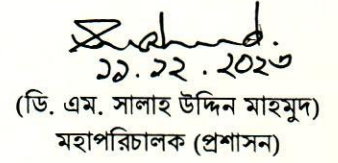 ১১.১২.২০২৩
(ডি. এম. সালাহ উদ্দিন মাহমুদ)
মহাপরিচালক (প্রশাসন)